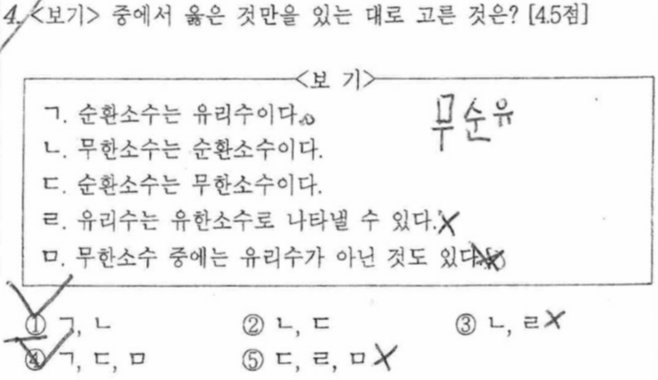 4. <보기> 중에서 옳은 것만을 있는 대로 고른 것은? [4.5점]
<보 기>
ㄱ. 순환소수는 유리수이다.
무순유
ㄴ. 무한소수는 순환소수이다.
ㄷ. 순환소수는 무한소수이다.
ㄹ. 유리수는 유한소수로 나타낼 수 있다.
ㅁ. 무한소수 중에는 유리수가 아닌 것도 있다.
① ㄱ, ㄴ ② ㄴ, ㄷ ③ ㄴ, ㄹ
④ ㄱ, ㄷ, ㅁ ⑤ ㄷ, ㄹ, ㅁ